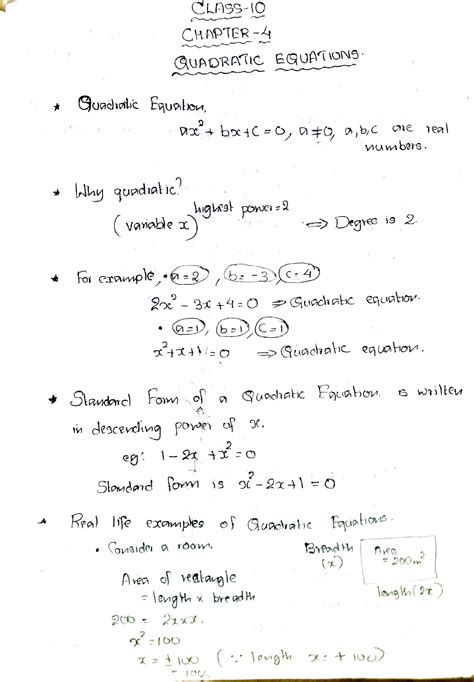 CLASS-10
CHAPTER-4
QUADRATIC EQUATIONS.
* Quadratic Equation,
ax² + bx + c = 0, a ≠ 0, a,b,c are real
numbers.
* Why quadratic?
(variable x) highest power = 2 ⇒ Degree is 2
* For example, • a=2, b=-3, c=4
2x² - 3x + 4 = 0 ⇒ Quadratic equation.
• a=1, b=1, c=1
x² + x + 1 = 0 ⇒ Quadratic equation.
* Standard Form of a Quadratic Equation is written
in descending power of x.
eg: 1 - 2x + x² = 0
Standard form is x² - 2x + 1 = 0
* Real life examples of Quadratic Equations.
• Consider a room.
Breadth
(x)
Area
= 200m²
length (2x)
Area of rectangle
= length × breadth
200 = 2x×x.
x² = 100
x = ± 100 (∵ length x = + 100)
= 100.